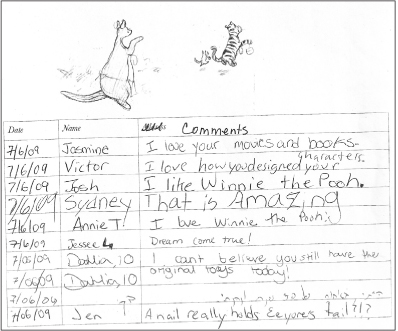 Date Name Comments
7/6/09 Jasmine I love your movies and books-
characters.
7/6/09 Victor I love how you designed your
7/6/09 Josh I like Winnie the Pooh.
7/6/09 Sydney That is Amazing
7/6/09 Annie T! I love Winnie the Pooh!
7/6/09 Jessee L Dream come true!
7/06/09 Dahlia, 10 I can't believe you still have the
7/06/09 Dahlia, 10 original toys today!
7/06/09
7/06/09 Jen A nail really holds Eeyores tail?!?